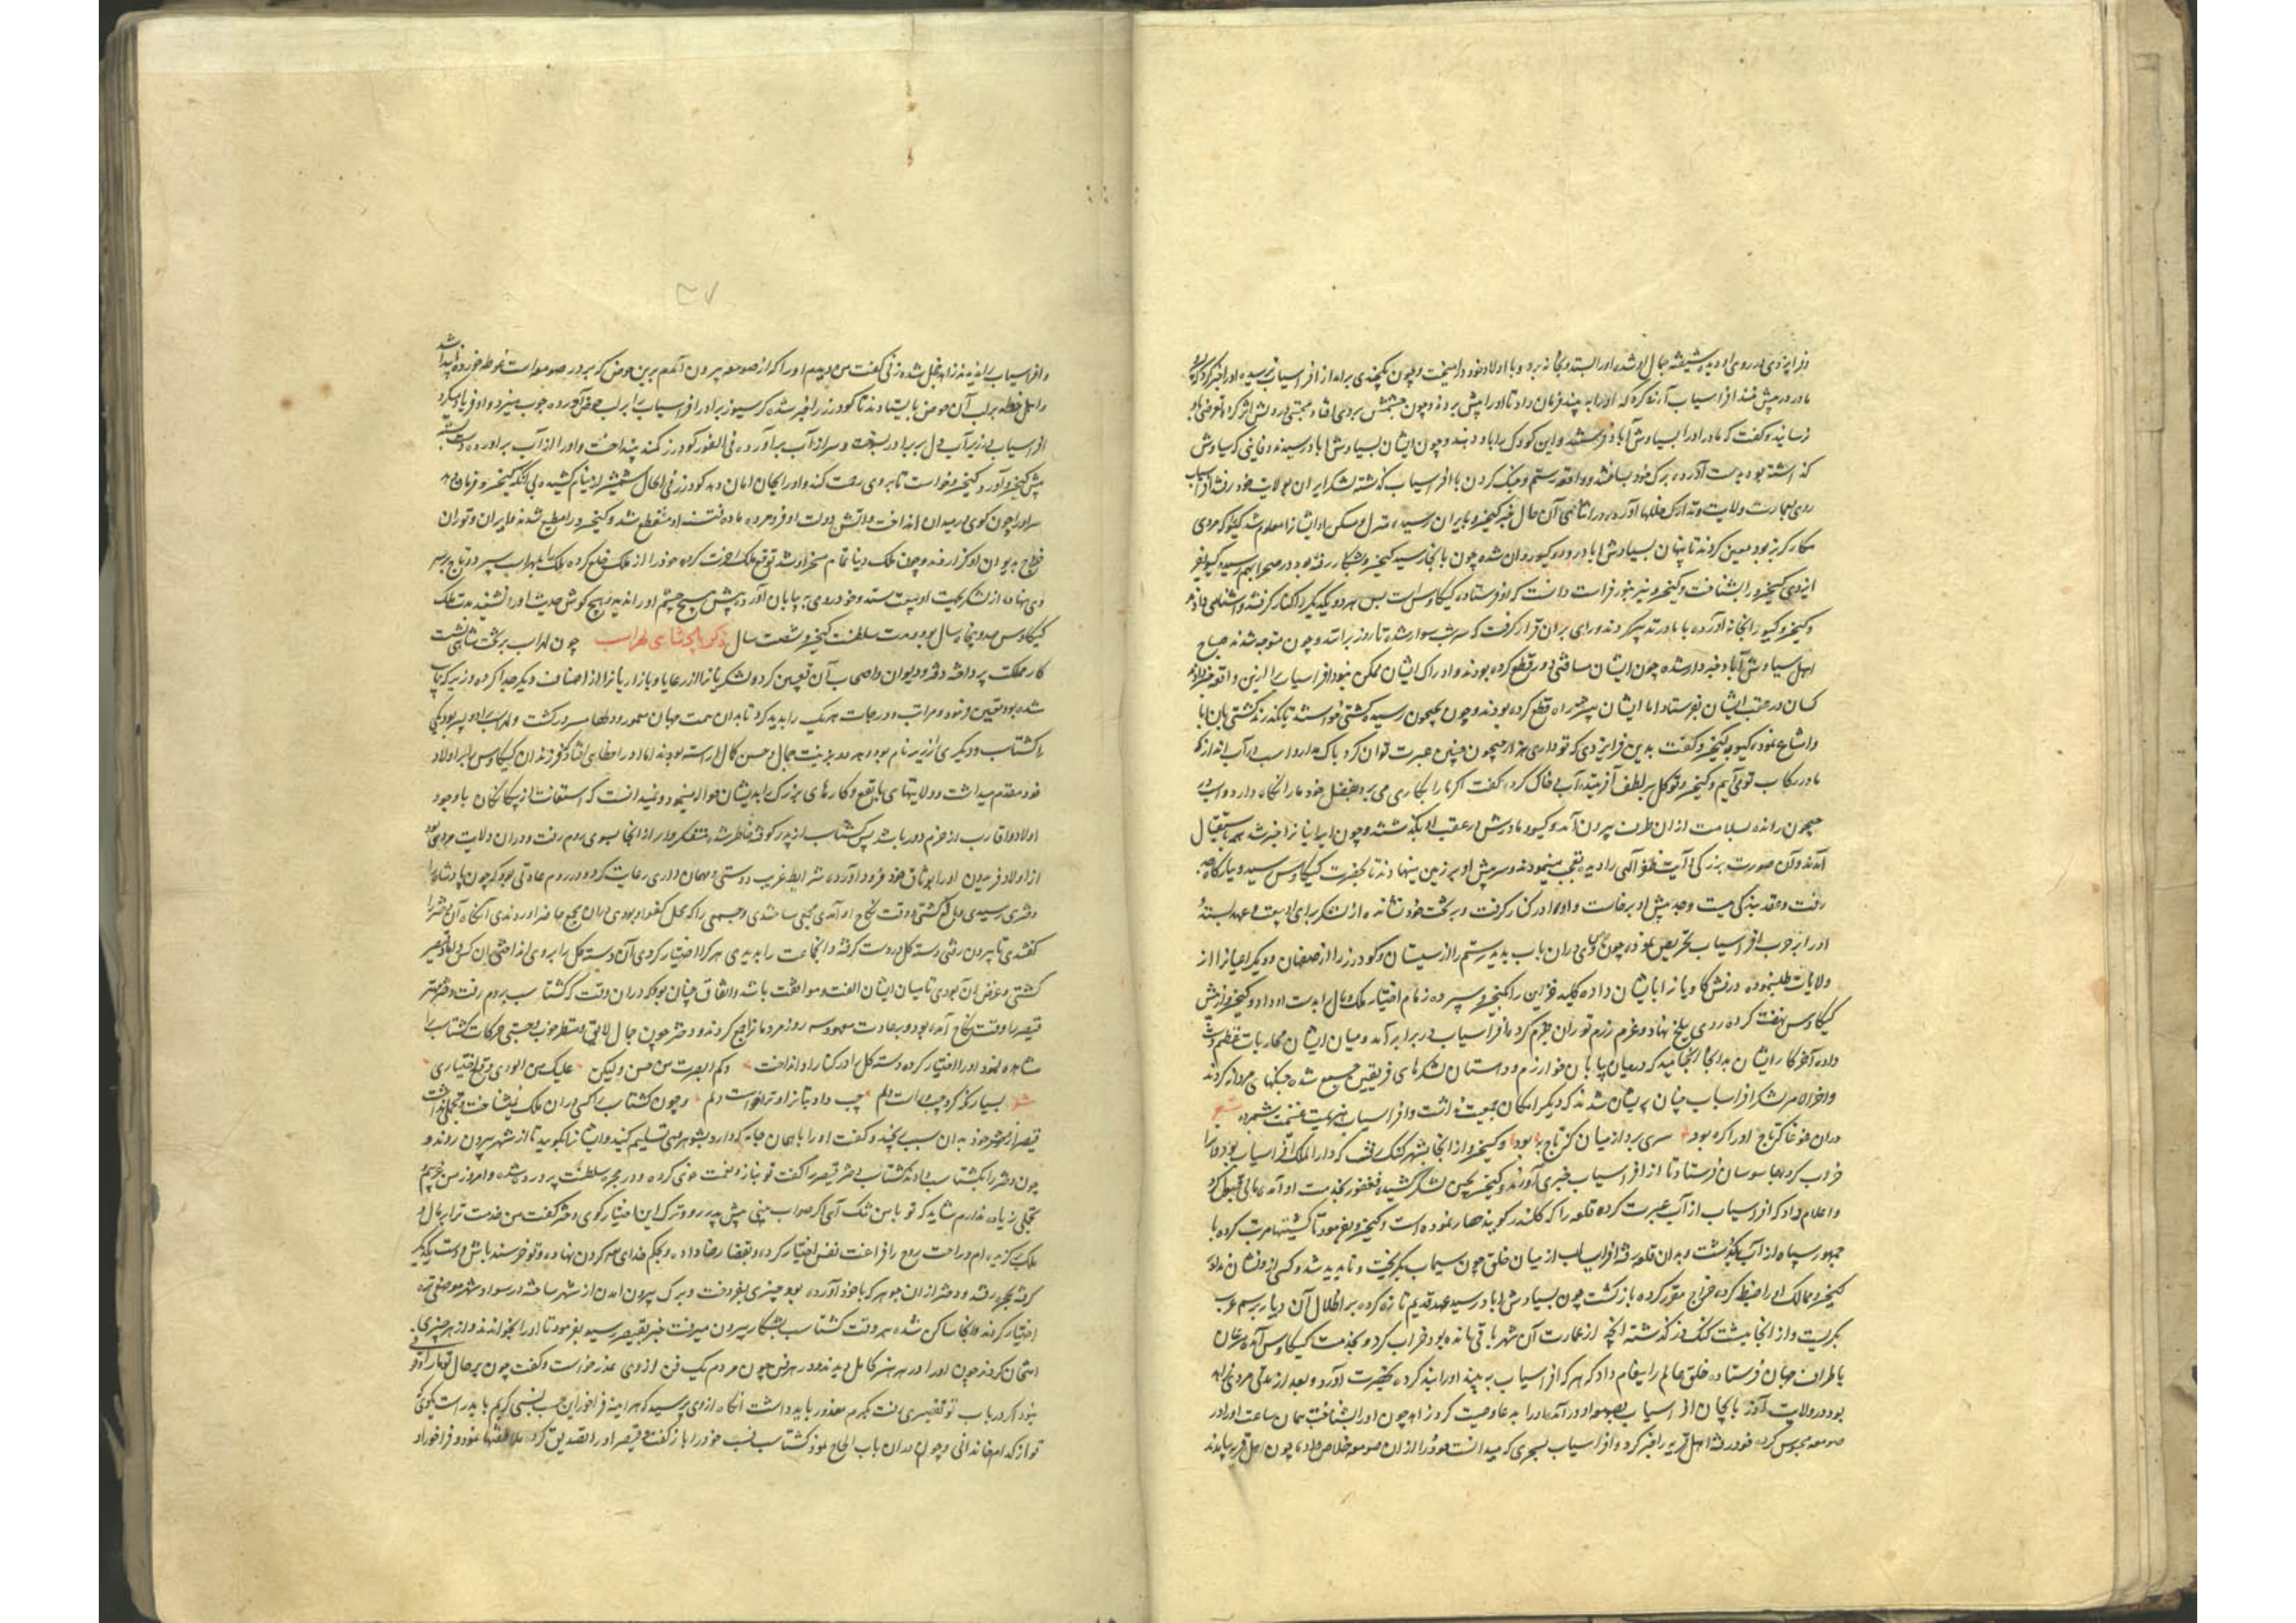 مادر در پیش افراسیاب آرند
رسانید و گفت که مادر او را بسیاوش آباد فرستند و این کودک را با او دهند و چون ایشان بسیاوش آباد رسیدند دفاینی که سیاوش
گذاشته بود بدست آورده برک خود ساختند و واقعه رستم و جنک کردن با افراسیاب گذشته لشکر ایران بولایت خود رفتند افراسیاب
روی بعمارت ولایت و تدارک خللها آورد و در اثنای آن حال خبر کیخسرو بایران رسید منزل و مسکن او ایشانرا معلوم شد گیو که مردی
مکار گربز بود معین کردند تا پنهان بسیاوش آباد رود و گیو روان شد و چون بآنجا رسید کیخسرو بشکار رفته بود در صحرا بهم رسیدند گیو بفر
ایزدی کیخسرو را بشناخت و کیخسرو نیز بنور فراست دانست که او فرستاده کیکاوس است پس هر دو یکدیگر را کنار گرفتند
و کیخسرو گیو را بخانه آورده با مادر تدبیر کردند و رای بران قرار گرفت که هم شب سوار شده تا روز براندند و چون متوجه شدند صباح
اهل سیاوش آباد خبردار شدند چون ایشان مسافتی دور قطع کرده بودند و ادراک ایشان ممکن نبود افراسیاب را ازین واقعه
کسان در عقب ایشان بفرستاد اما ایشان بیشتر راه قطع کرده بودند و چون بجیحون رسیدند کشتی خواستند تا بگذرند کشتی بان ابا
و امتناع نمود گیو با کیخسرو گفت بدین فر ایزدی که تو داری هزار جیحون چنین عبرت توان کرد باک مدار و اسب در آب انداز که
ما در رکاب تو می آییم و کیخسرو توکل بر لطف آفریننده آب و خاک کرده گفت اگر ما را بکاری می برد بفضل خود ما را نگاه دارد و اسب در
جیحون رانده بسلامت از ان طرف بیرون آمد و گیو و مادرش در عقب او بگذشتند و چون ایرانیانرا خبر شد همه باستقبال
آمدند و آن صورت بزرگی آیت لطف الهی را دیده تعجب مینمودند و سر پیش او بر زمین مینهادند تا بحضرت کیکاوس رسید و ببارگاه
رفت و عقد بندگی بست و جد پیش او برخاست و او را در کنار گرفت و بر تخت خود نشانده از لشکر برای او بیعت و عهد بستند
او را بر حرب افراسیاب تحریص نمود دران باب بدید رستم را از سیستان و گودرز را از صفهان و دیگر اعیانرا از
ولایات طلب نموده درفش کاویانرا بایشان داده کلید خزاین را بکیخسرو سپرده زمام اختیار ملک و مال را بدست او داد و کیخسرو از پیش
کیکاوس نهضت کرده روی ببلخ نهاد و عزم رزم توران جزم کرد افراسیاب در برابر آمد و میان ایشان محاربات عظیم دست
داده آخر کار ایشان بدانجا انجامید که در میان بیابان خوارزم و دهستان لشکرهای فریقین جمع شده جنکهای مردانه کردند
و آخر الامر لشکر افراسیاب چنان پریشان شدند که دیگر امکان جمعیت نداشت و افراسیاب هزیمت غنیمت شمرده شعر
دران غوغا که تاج اورا کره بود سری برد از میان کز تاج به بود و کیخسرو از انجا بشهر گنک رفت که دار الملک افراسیاب بود
خراب کرد و جاسوسان فرستاد تا از افراسیاب خبری آوردند و کیخسرو بچین لشکر کشید و فغفور بخدمت او آمد
و اعلام داد که افراسیاب از آب عبرت کرده قلعه را که کلندر گویند حصار نموده است و کیخسرو بفرمود تا کشتیها مرتب کرده با
جمهور سپاه از آب بگذشت و بدان قلعه رفته افراسیاب از میان خلق چون سیماب بگریخت و ناپدید شد و کسی از و نشان نداد
کیخسرو ممالک او را ضبط کرده خراج مقرر کرده بازگشت چون بسیاوش آباد رسید عهد قدیم تازه کرده بر اطلال آن دیار برسم عرب
بگریست و از انجا ببهشت گنک دز گذشته آنچه از عمارت آن شهر باقی مانده بود خراب کرد و بخدمت کیکاوس آمده
باطراف جهان فرستاده خلق عالم را پیغام داد که هر که افراسیاب را به بیند او را بند کرده بحضرت آورد و بعد از مدتی مردی زاهد
بود در ولایت آذربایجان افراسیاب بصومعه او در آمد او را بدعا وصیت کرد زاهد چون او را بشناخت همان ساعت او را در
صومعه محبوس کرده خود رفته اهل قریه را خبر کرد و افراسیاب بسحری که میدانست خود را از ان صومعه خلاص داد چون اهل قریه بیامدند
و افراسیاب را ندیدند زاهد خجل شد زنی گفت من دیدم او را که از صومعه بیرون آمدم برین حوض که بر در صومعه است غوطه خورد و ناپیدا شد
بر لب آن حوض بایستادند تا گودرز را خبر شد کرسیوز برادر افراسیاب را بر لب حوض آورده چوب میزد و او فریاد میکرد
افراسیاب در زیر آب دل بر برادر بسوخت و سر از آب برآورده فی الفور گودرز کمند بینداخت و او را از آب برآورده
پیش کیخسرو آورد و کیخسرو خواست تا بر وی رحمت کند و او را بجان امان دهد گودرز فی الحال شمشیر از نیام کشیده بی آنکه کیخسرو فرمان دهد
سر او را چون گوی در میدان انداخت و آتش دولت او فرو مرده ماده فتنه او منقطع شد و کیخسرو را مطیع شدند ملک ایران و توران
خراج بدیوان او گزاردند و چون ملک دنیا تمام مسخر او شد توقع ملک آخرت کرده خود را از ملک خلع کرده ملک را بلهراسب سپرد و تاج بر سر
وی نهاده از لشکر بجهت او بیعت ستد و خود روی به بیابان آورده پس هیچ چشم او را ندید و هیچ گوش حدیث او را نشنید مدت ملک
کیکاوس صد و پنجاه سال بود و مدت سلطنت کیخسرو شصت سال ذکر پادشاهی لهراسب چون لهراسب بر تخت شاهی نشست
کار مملکت پرداخته دفتر و دیوان و اصحاب آن تعیین کرد و لشکریانرا از رعایا و بازاریانرا از اصناف دیگر جدا کرده
شده بود تعیین نمود و مراتب و درجات هر یک را بدید کرد تا بدان سمت جهان معمور و دلها مسرور گشت و لهراسب را دو پسر بود یکی
را گشتاسب و دیگری را زریر نام بود و هر دو بزینت جمال و حسن کمال آراسته بودند اما در اعطا فرزندان کیکاوس را بر اولاد
خود مقدم میداشت و ولایتهای با نفع و کارهای بزرک را بدیشان حواله مینمود و نمیدانست که استعانت از بیگانگان با وجود
اولاد و اقارب از حزم دور باشد پس گشتاسب از پدر کوفته خاطر شده متفکروار از انجا بسوی روم رفت و دران ولایت مردی بود
از اولاد فریدون او را بوثاق خود فرود آورده شرایط غریب دوستی و مهمان داری رعایت کرد و در روم عادتی بود که چون پادشاه را
دختری رسیدی و بالغ گشتی و وقت نکاح او آمدی مجلسی ساختندی و جمعی را که محل کفو او بودی دران مجمع حاضر آوردندی آنگاه آن دختر را
گفتندی تا بیرون رفتی دسته گل در دست گرفته و انجماعت را بدیدی هر که را اختیار کردی آن دسته گل را بر وی انداختی آن کس داماد قیصر
گشتی و غرض آن بودی تا میان ایشان الفت و موافقت باشد و اتفاق چنان بود که دران وقت که گشتاسب بروم رفت دختر مهتر
قیصر را وقت نکاح آمده بود و بر عادت معهود سه روز مردمانرا جمع کردند و دختر چون جمال لایق و منظر خوب و حرکات گشتاسب را
مشاهده نمود او را اختیار کرده دسته گل را در کنار او انداخت وکم ابصرت من حسن ولیکن علیک من الوری وقع اختیاری
شعر بسیار نگه کرد چپ و راست دلم چپ داد بتانرا و ترا خواست دلم و چون گشتاسب را کسی دران ملک نشناخت و تجملی نداشت
قیصر از دختر خود بدان سبب برنجید و گفت او را با همان جامه که دارد بشوهر وی تسلیم کنید و ایشانرا بگویید تا از شهر بیرون روند و
چون دختر را بگشتاسب دادند گشتاسب دختر قیصر را گفت تو بناز و نعمت خوی کرده و در حجر سلطنت پرورده شده و امروز من غریبم
تجملی زیاده ندارم شاید که تو با من تنک آیی اگر صواب بینی پیش پدر رو و ترک این اختیار گوی دختر گفت من خدمت ترا بر مال و
ملک برگزیده ام و راحت روح را فراغت نفس اختیار کرده و بقضا رضا داده و بحکم خدای سر گردن نهاده و تو خرسند باش دست یکدیگر
گرفته بحجره رفتند و دختر از ان جوهر که با خود آورده بود چیزی بفروخت و برک بیرون آمدن از شهر ساخته در سواد شهر موضعی نزه
اختیار کردند و آنجا ساکن شدند هر وقت گشتاسب بشکار بیرون میرفت خبر بقیصر رسید بفرمود تا او را بخواندند و از هر چیزی
امتحان کردند چون او را در هر هنر کامل دیدند و در هر فن چون مردم یک فن از وی عذر خواست و گفت چون بر حال تو ما را وقوف
نبود اگر در باب تو تقصیری رفت مکرم معذور باید داشت آنگاه از وی پرسید که هر آینه فراخور این حسب نسبی کریم باید راست بگوی که
تو از کدام خاندانی و چون دران باب الحاح نمود گشتاسب نسب خود را باز گفت و قیصر او را تصدیق کرد ملاطفتها نمود و فراخور او